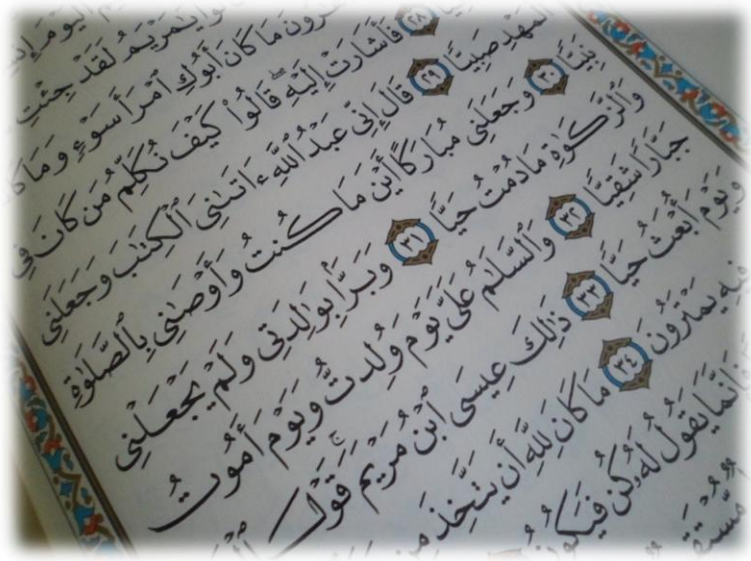 ٱلْيَوْمَ
يَٰمَرْيَمُ لَقَدْ جِئْتِ
مَا كَانَ أَبُوكِ ٱمْرَأَ سَوْءٍ وَمَا
٢٨ فَأَشَارَتْ إِلَيْهِ ۖ قَالُوا۟ كَيْفَ نُكَلِّمُ مَن كَانَ فِى
ٱلْمَهْدِ صَبِيًّا ٢٩ قَالَ إِنِّى عَبْدُ ٱللَّهِ ءَاتَىٰنِىَ ٱلْكِتَٰبَ وَجَعَلَنِى
نَبِيًّا ٣٠ وَجَعَلَنِى مُبَارَكًا أَيْنَ مَا كُنتُ وَأَوْصَٰنِى بِٱلصَّلَوٰةِ
وَٱلزَّكَوٰةِ مَا دُمْتُ حَيًّا ٣١ وَبَرًّۢا بِوَٰلِدَتِى وَلَمْ يَجْعَلْنِى
جَبَّارًا شَقِيًّا ٣٢ وَٱلسَّلَٰمُ عَلَىَّ يَوْمَ وُلِدتُّ وَيَوْمَ أَمُوتُ
وَيَوْمَ أُبْعَثُ حَيًّا ٣٣ ذَٰلِكَ عِيسَى ٱبْنُ مَرْيَمَ ۚ قَوْلَ
فِيهِ يَمْتَرُونَ ٣٤ مَا كَانَ لِلَّهِ أَن يَتَّخِذَ مِن
فَإِنَّمَا يَقُولُ لَهُۥ كُن فَيَكُونُ